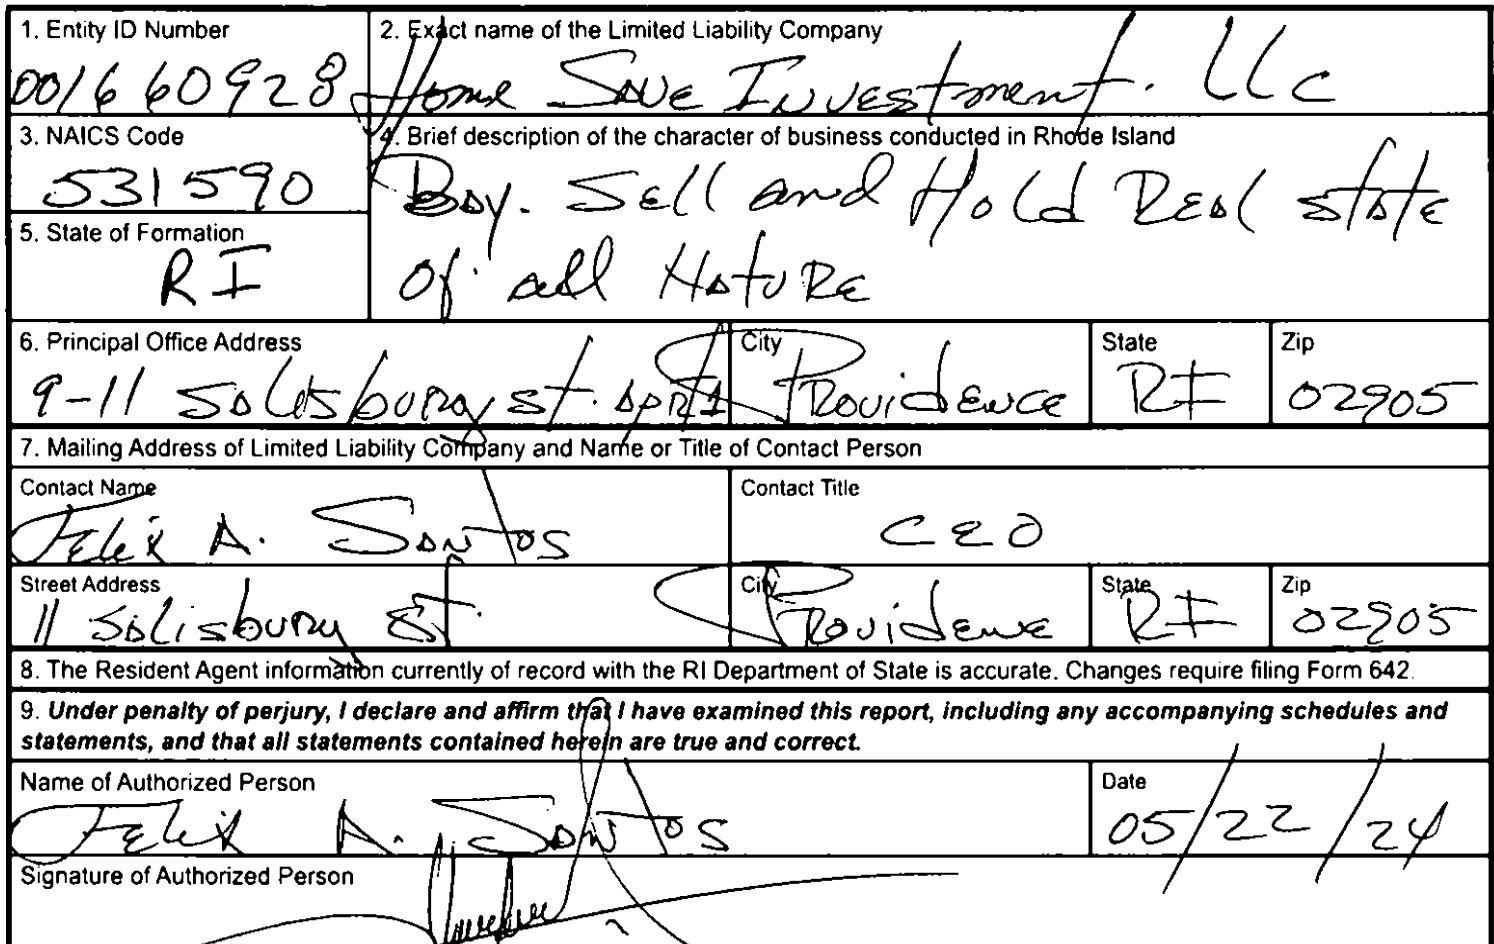 1. Entity ID Number
001660928
2. Exact name of the Limited Liability Company
Home Save Investment. LLc
3. NAICS Code
531590
4. Brief description of the character of business conducted in Rhode Island
Buy. Sell and Hold Real state
of all Nature
5. State of Formation
RI
6. Principal Office Address
9-11 Salisbury st. Apt 1
City
Providence
State
RI
Zip
02905
7. Mailing Address of Limited Liability Company and Name or Title of Contact Person
Contact Name
Felix A. Santos
Contact Title
CEO
Street Address
11 Salisbury St.
City
Providence
State
RI
Zip
02905
8. The Resident Agent information currently of record with the RI Department of State is accurate. Changes require filing Form 642.
9. Under penalty of perjury, I declare and affirm that I have examined this report, including any accompanying schedules and
statements, and that all statements contained herein are true and correct.
Name of Authorized Person
Felix A. Santos
Date
05/22/24
Signature of Authorized Person